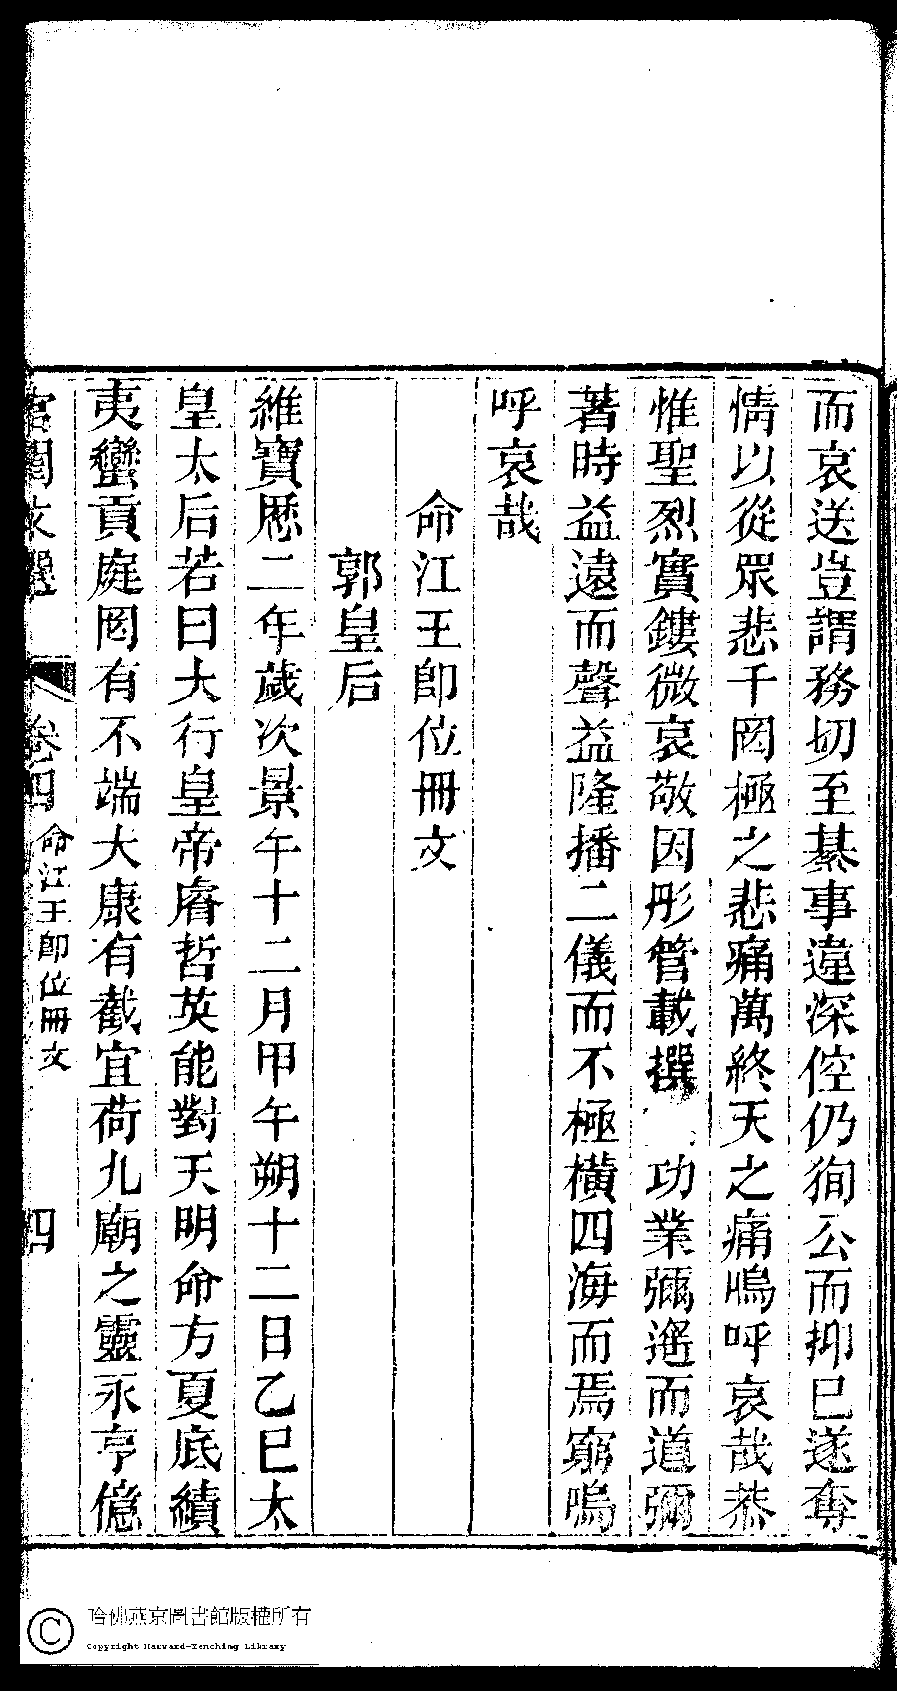 而哀送豈謂務切至綦事違深倥仍狥公而抑已遂奪
情以從眾悲千罔極之悲痛萬終天之痛嗚呼哀哉恭
惟聖烈實鏤微哀敬因彤管載撰 功業彌遙而道彌
著時益遠而聲益隆播二儀而不極橫四海而焉窮嗚
呼哀哉
命江王即位冊文
郭皇后
維寶厯二年歲次景午十二月甲午朔十二日乙巳太
皇太后若曰大行皇帝睿哲英能對天明命方夏底績
夷蠻貢庭罔有不端大康有截宜荷九廟之靈永亨億
宮閨文選 卷四 命江王即位冊文 四
哈佛燕京圖書館版權所有
Copyright Harvard-Yenching Library